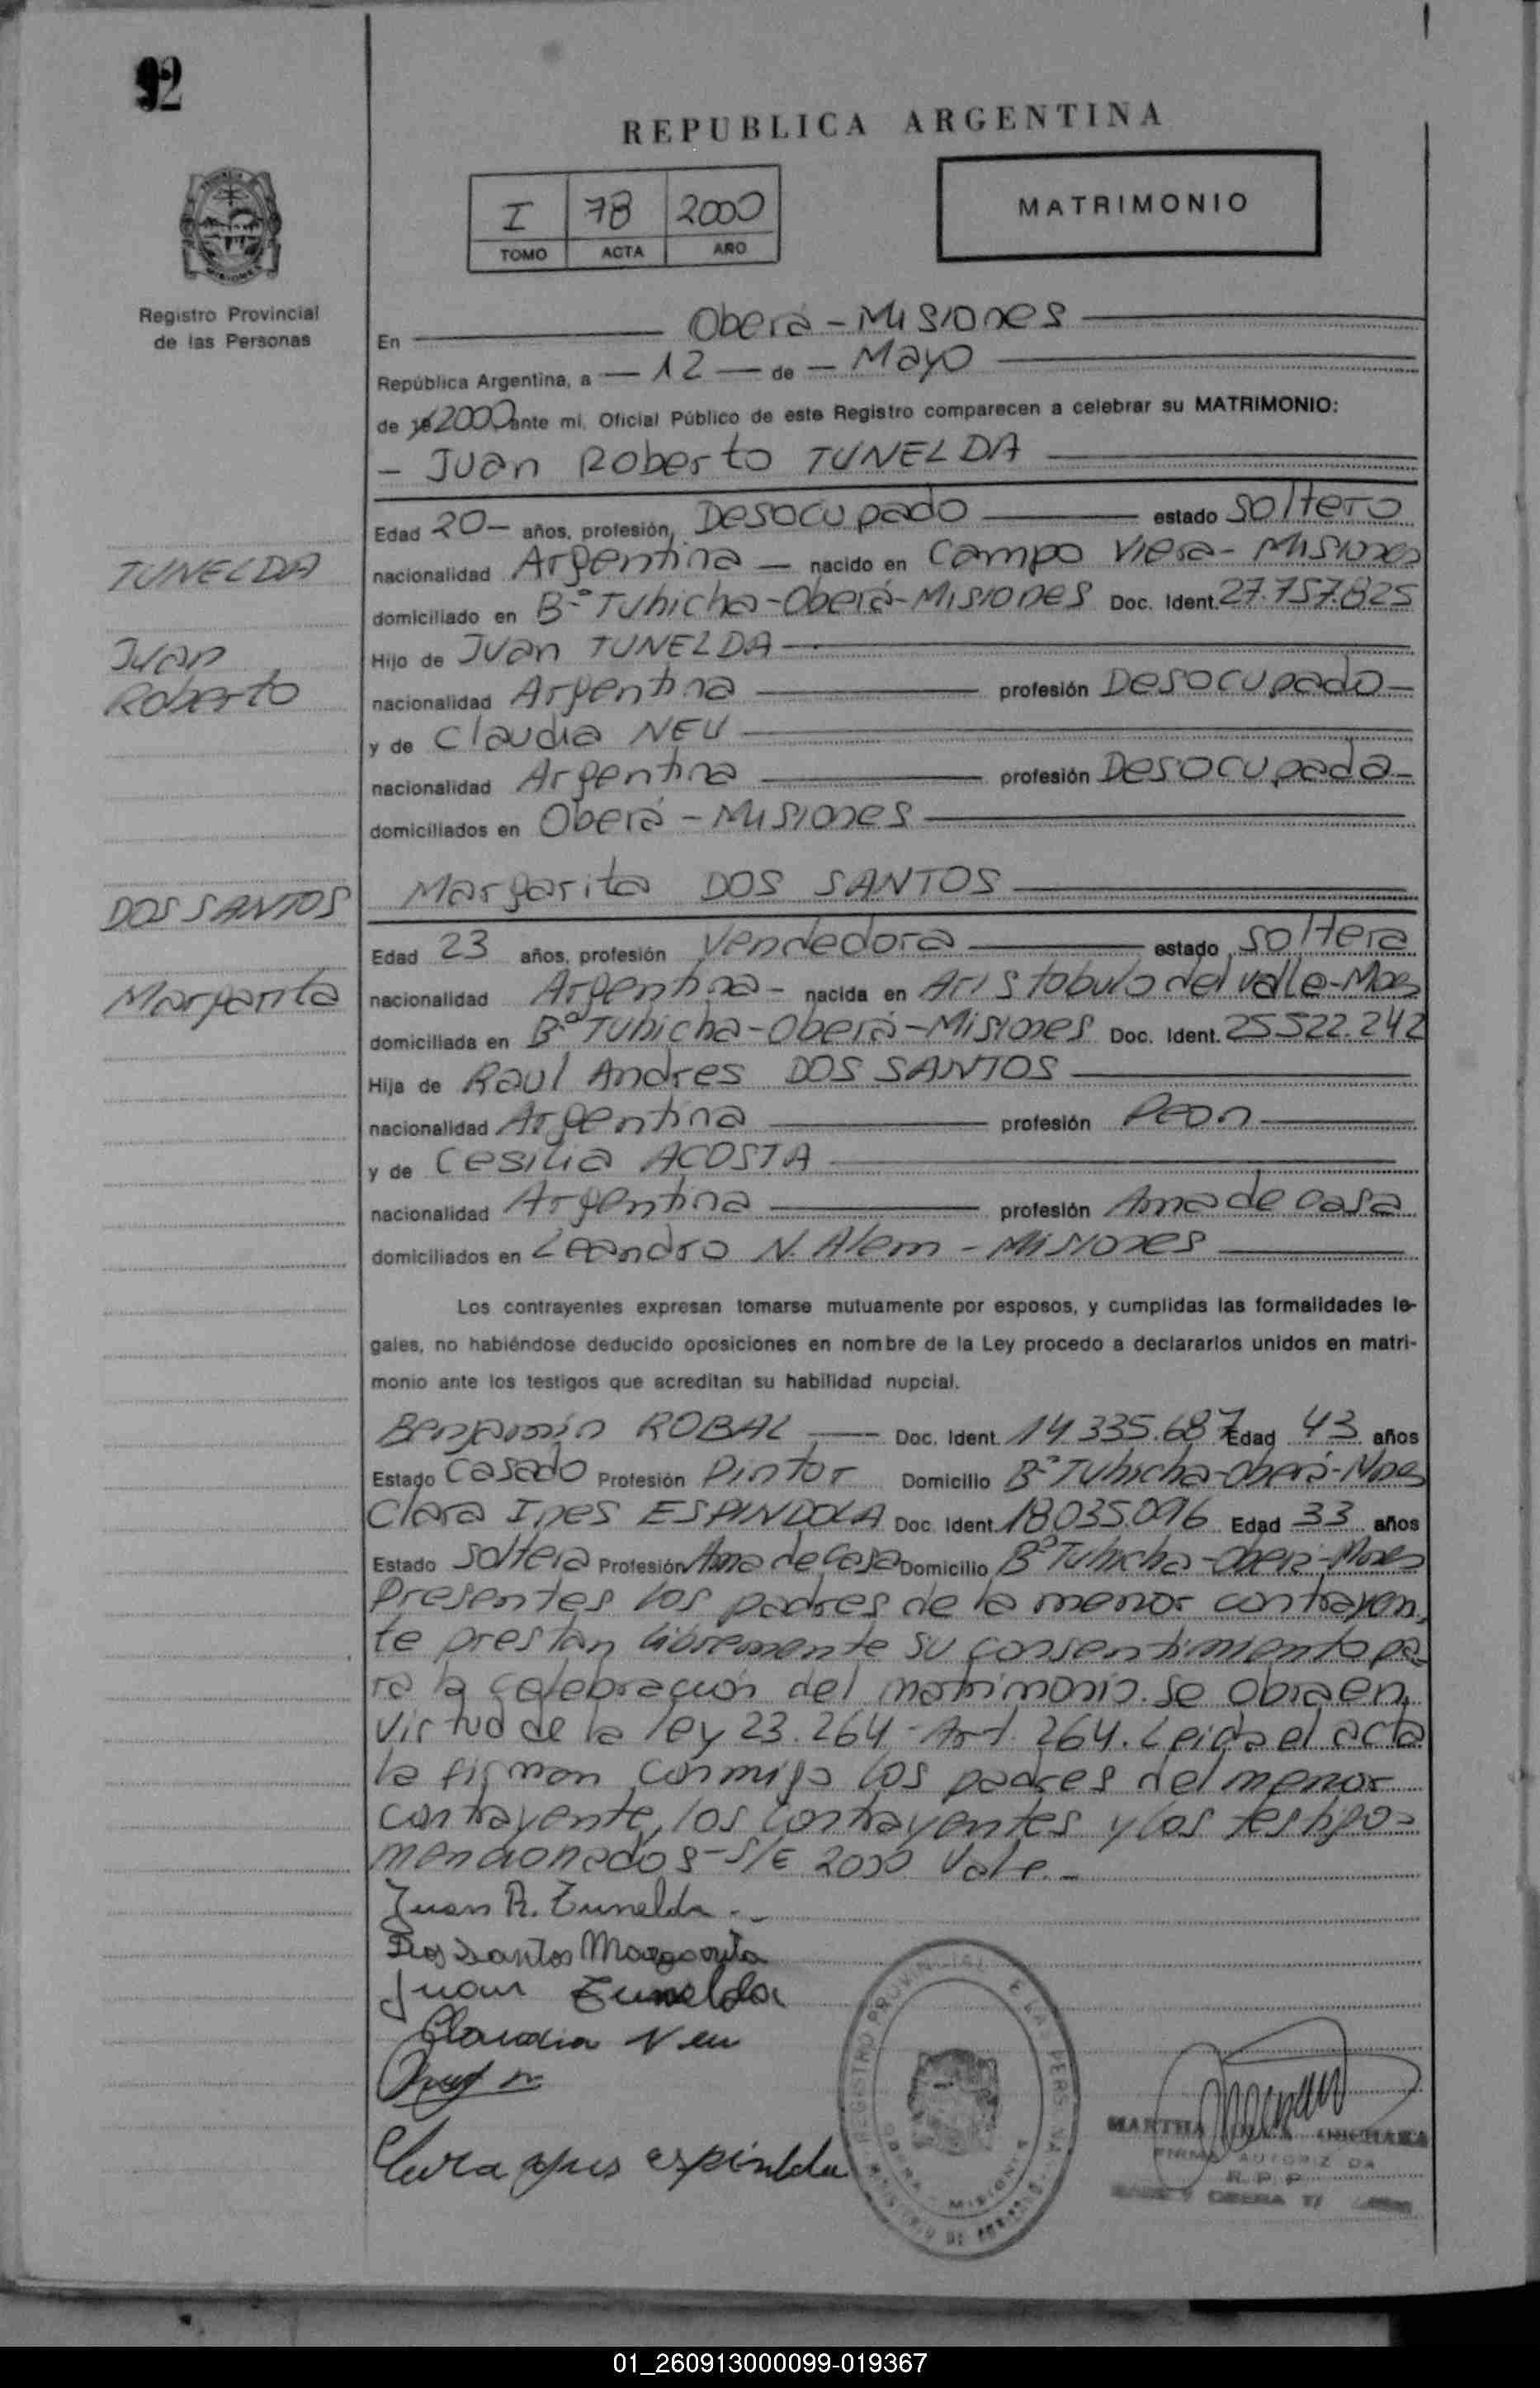 92
REPUBLICA ARGENTINA
I 78 2000
TOMO ACTA AÑO
MATRIMONIO
Registro Provincial
de las Personas
En Oberá - Misiones
República Argentina, a - 12 - de - Mayo
de 19 2000 ante mi, Oficial Público de este Registro comparecen a celebrar su MATRIMONIO:
- Juan Roberto TUNELDA
Edad 20- años, profesión, Desocupado estado soltero
TUNELDA
nacionalidad Argentina - nacido en Campo Viera - Misiones
domiciliado en Bº Tuhicha - Oberá - Misiones Doc. Ident. 27.757.825
Juan
Hijo de Juan TUNELDA
Roberto
nacionalidad Argentina profesión Desocupado -
y de Claudia NEU
nacionalidad Argentina profesión Desocupada -
domiciliados en Oberá - Misiones
DOS SANTOS
Margarita DOS SANTOS
Edad 23 años, profesión Vendedora estado soltera
Margarita
nacionalidad Argentina - nacida en Aristobulo del Valle - Mnes
domiciliada en Bº Tuhicha - Oberá - Misiones Doc. Ident. 25.522.242
Hija de Raul Andres DOS SANTOS
nacionalidad Argentina profesión Peon
y de Cesilia ACOSTA
nacionalidad Argentina profesión Ama de casa
domiciliados en Leandro N. Alem - Misiones
Los contrayentes expresan tomarse mutuamente por esposos, y cumplidas las formalidades le-
gales, no habiéndose deducido oposiciones en nombre de la Ley procedo a declararlos unidos en matri-
monio ante los testigos que acreditan su habilidad nupcial.
Benjamín ROBAL Doc. Ident. 14.335.687 Edad 43 años
Estado Casado Profesión Pintor Domicilio Bº Tuhicha - Oberá - Mnes
Clara Ines ESPINDOLA Doc. Ident. 18.035.096 Edad 33 años
Estado Soltera Profesión Ama de Casa Domicilio Bº Tuhicha - Oberá - Mnes
Presentes los padres de la menor contrayen,
te prestan libremente su consentimiento pa-
ra la celebración del matrimonio. Se obra en,
virtud de la ley 23.264 - Art. 264. Leida el acta
la firman conmigo los padres del menor
contrayente, los contrayentes y los testigo=
mencionados - S/E 2000 Vale. -
Juan R. Tunelda. -
Dos Santos Margarita
Juan Tunelda
Claudia Neu
Clara ines espindola
REGISTRO PROVINCIAL DE LAS PERSONAS
OBERA - MISIONES
MARTHA
FIRMA AUTORIZADA
R. P. P.
OBERA
01_260913000099-019367